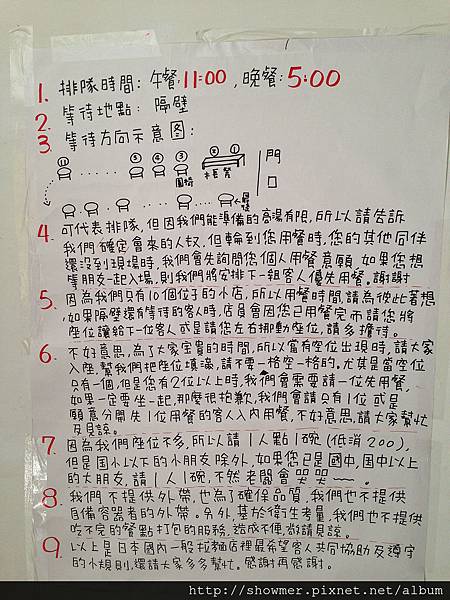 1. 排隊時間: 午餐:11:00, 晚餐:5:00
2. 等待地點: 隔壁
3. 等待方向示意图:
⑪ ⑤ ④ ③ ② ① 門
圓椅 長凳 口
4. 可代表排隊,但因我們能準備的高湯有限,所以請告訴
我們確定會來的人数,但輪到您用餐時,您的其他同伴
還沒到現場時,我們會先詢問您個人用餐意願,如果您想
等朋友一起入場,則我們將安排下一組客人優先用餐。謝謝
5. 因為我們只有10個位子的小店,所以用餐時間,請為彼此著想
,如果隔壁還有等待的客人時,店員會因您已用餐完而請您將
座位讓給下一位客人或是請您左右挪動座位,請多擔待。
6. 不好意思,為了大家宝貴的時間,所以當有空位出現時,請大家
入座,幫我們把座位填滿,請不要一格空一格的,尤其是當空位
只有一個,但是您有2位以上時,我們會需要請一位先用餐,
如果一定要坐一起,那麼很抱歉,我們會請只有1位或是
願意分開先1位用餐的客人入內用餐,不好意思,請大家幫忙
及見諒。
7. 因為我們座位不多,所以請1人點1碗(低消200),
但是国小以下的小朋友除外,如果您已是國中,国中以上
的大朋友,請1人1碗,不然老闆會哭哭~~。
8. 我們不提供外帶,也為了確保品質,我們也不提供
自備容器者的外帶。另外,基於衛生考量,我們也不提供
吃不完的餐點打包的服務,造成不便,尚請見諒。
9. 以上是日本國內一般拉麵店裡最希望客人共同協助及遵守
的小規則,還請大家多多幫忙。感謝再感謝。
http://showmer.pixnet.net/album